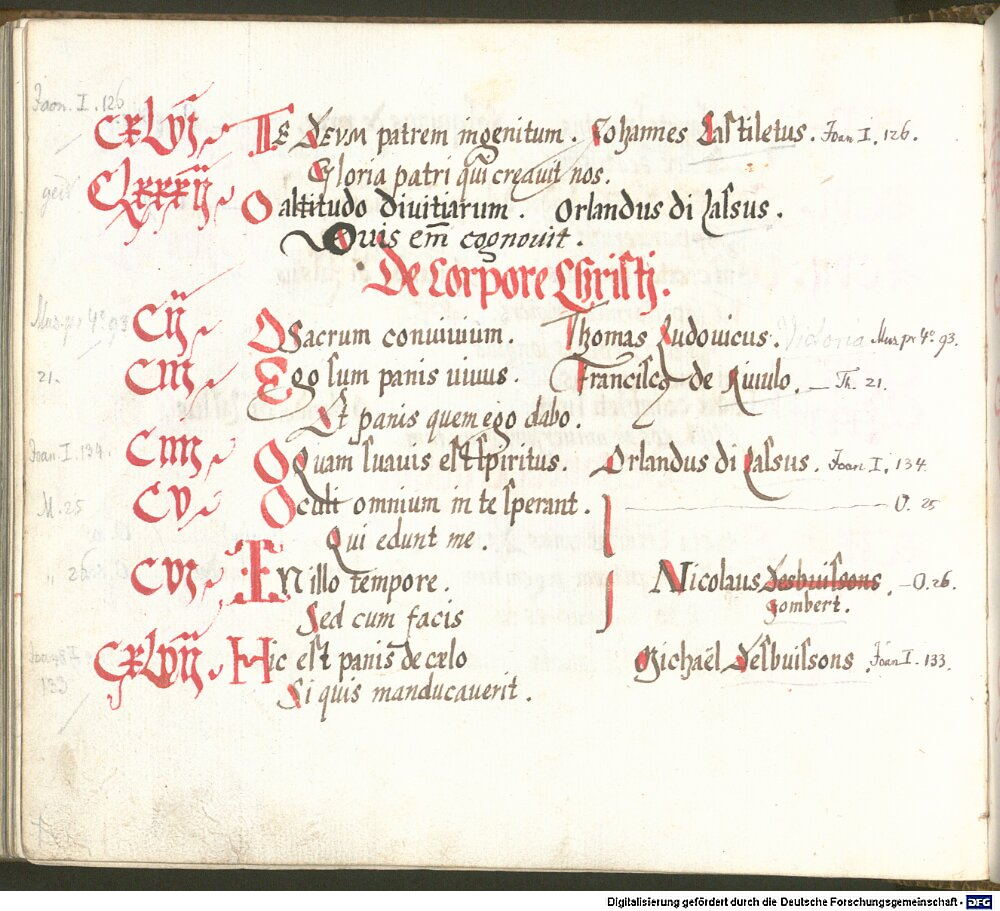 Joan. I. 126
CXLVI TE DEVM patrem ingenitum. Johannes Castiletus. Joan I. 126.
Gloria patri qui creauit nos.
CLXXXIJ O altitudo diuitiarum. Orlandus di Lassus.
Quis em̄ cognouit.
De Corpore Christi.
Mus. pr 4° 93 CIJ O Sacrum conuiuium. Thomas Ludouicus. Victoria Mus. pr. 4° 93.
21. CIII Ego sum panis uiuus. Francisco de Riuulo. — Th. 21.
Et panis quem ego dabo.
Joan. I. 134. CIIII O Quam suauis est spiritus. Orlandus di Lassus. Joan I. 134.
M. 25 CV Oculi omnium in te sperant. O. 25
Qui edunt me.
26 CVI IN illo tempore. Nicolaus Desbuissons. — O. 26.
Sed cum facis gombert.
CXLVII Hic est panis de cælo Michaël Desbuissons Joan I. 133.
133 Si quis manducauerit.
Digitalisierung gefördert durch die Deutsche Forschungsgemeinschaft - DFG